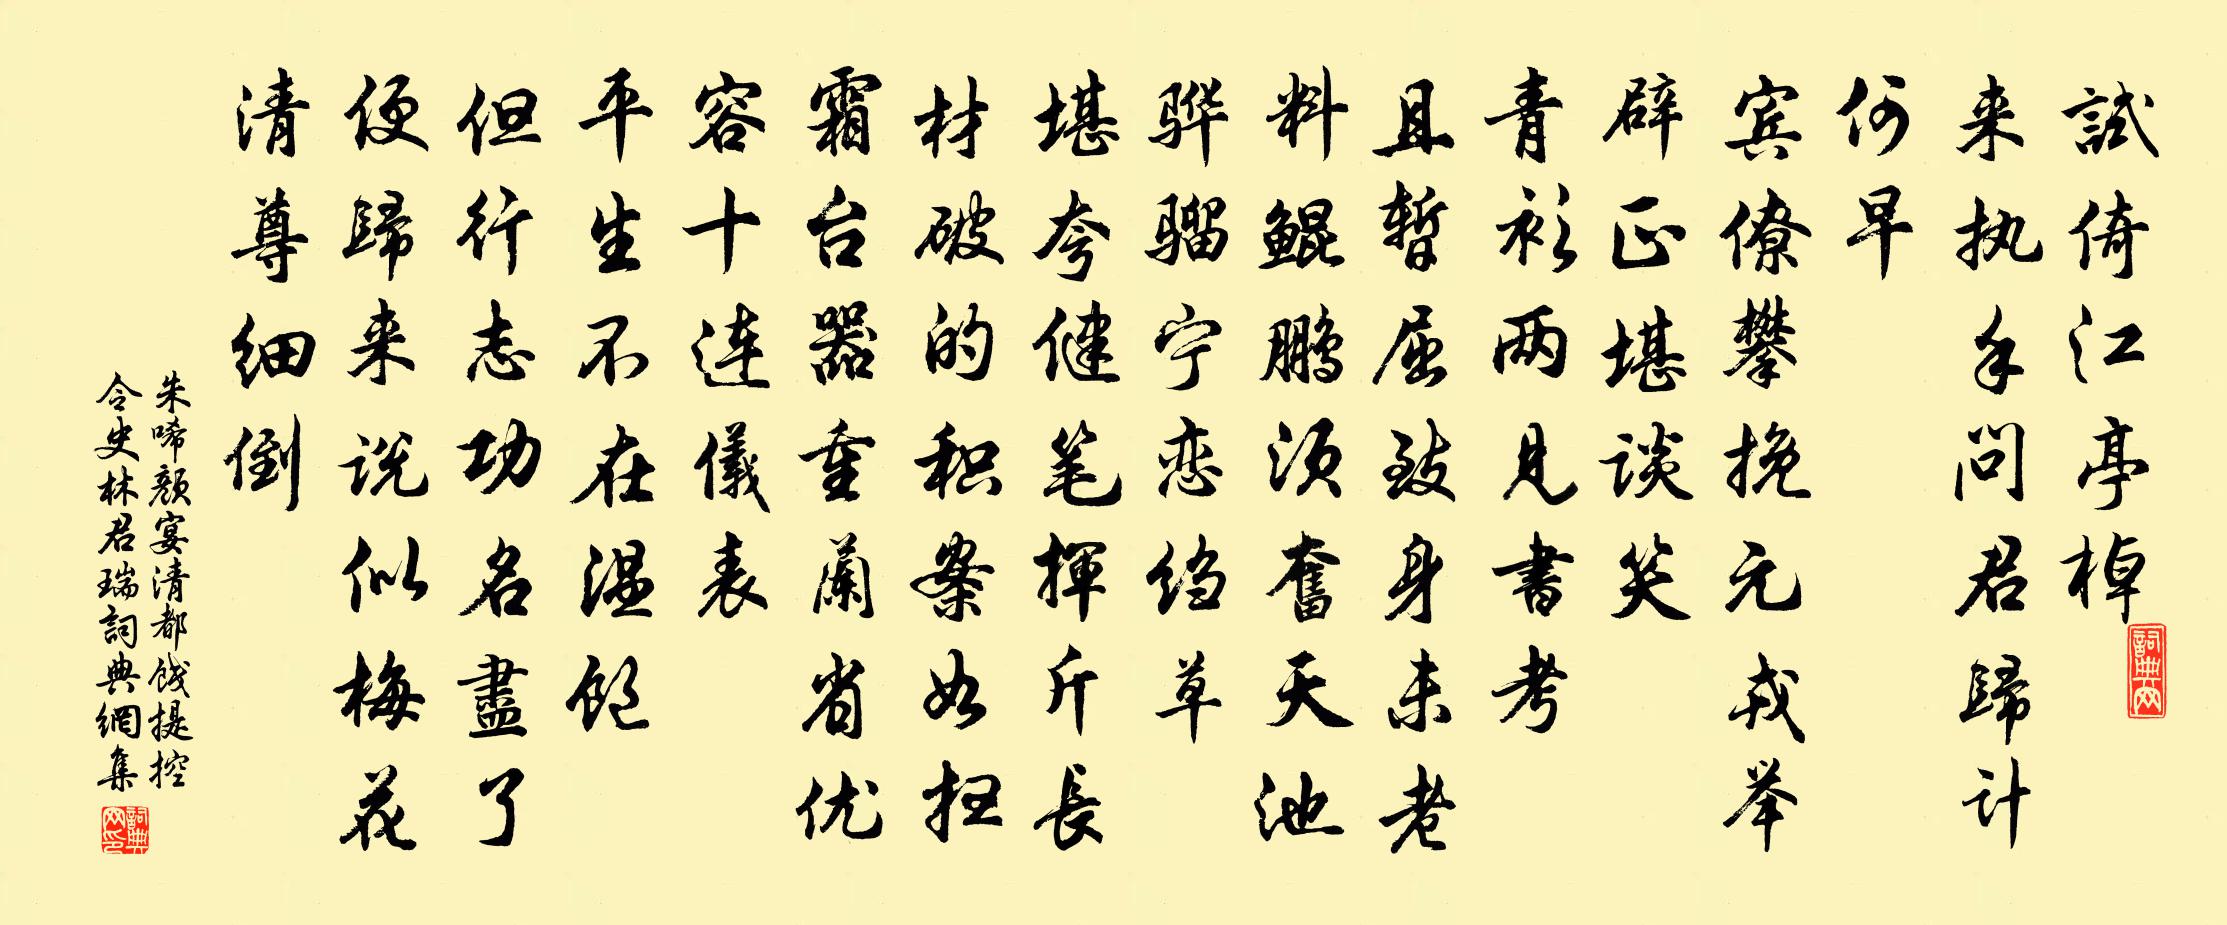 試倚江亭棹
来执手问君歸计
何早
宾僚攀挽元戎举
辟正堪谈笑
青衫两见書考
且暂屈致身未老
料鲲鹏须奮天池
骅骝宁恋绉草
堪夸健笔揮斤長
材破的积案如扫
霜台器重蘭省优
容十连儀表
平生不在温饱
但行志功名盡了
便歸来说似梅花
清尊细倒
朱唏颜宴清都饯提控
令史林君瑞詞典網集
詞典网
詞典网印